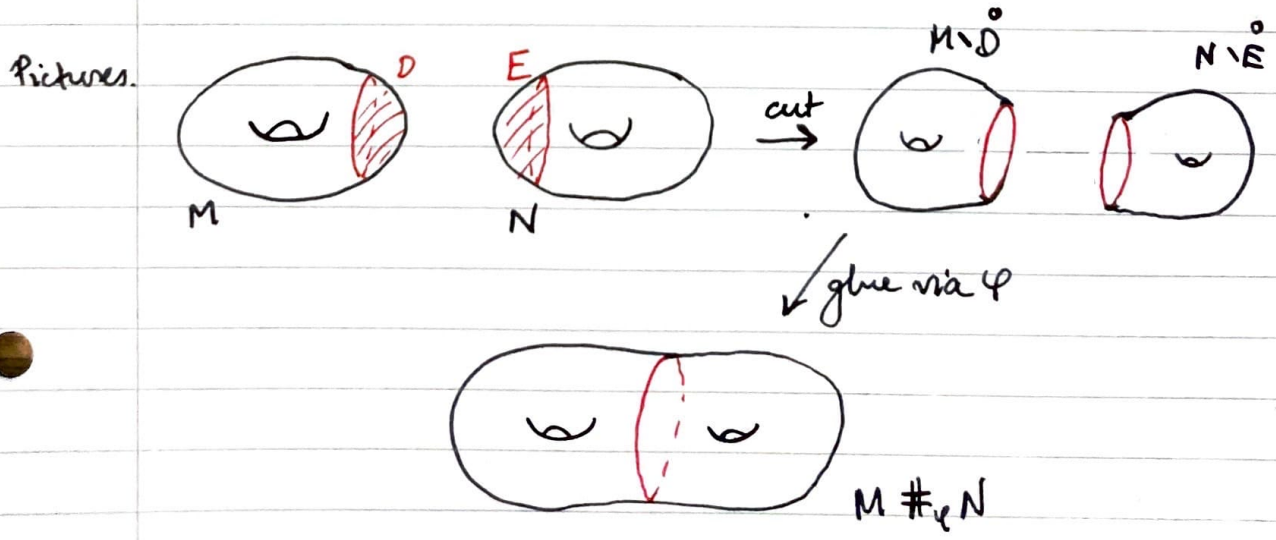 Pictures.
D
E
M
N
cut
M\D̊
N\E̊
glue via φ
M #_φ N